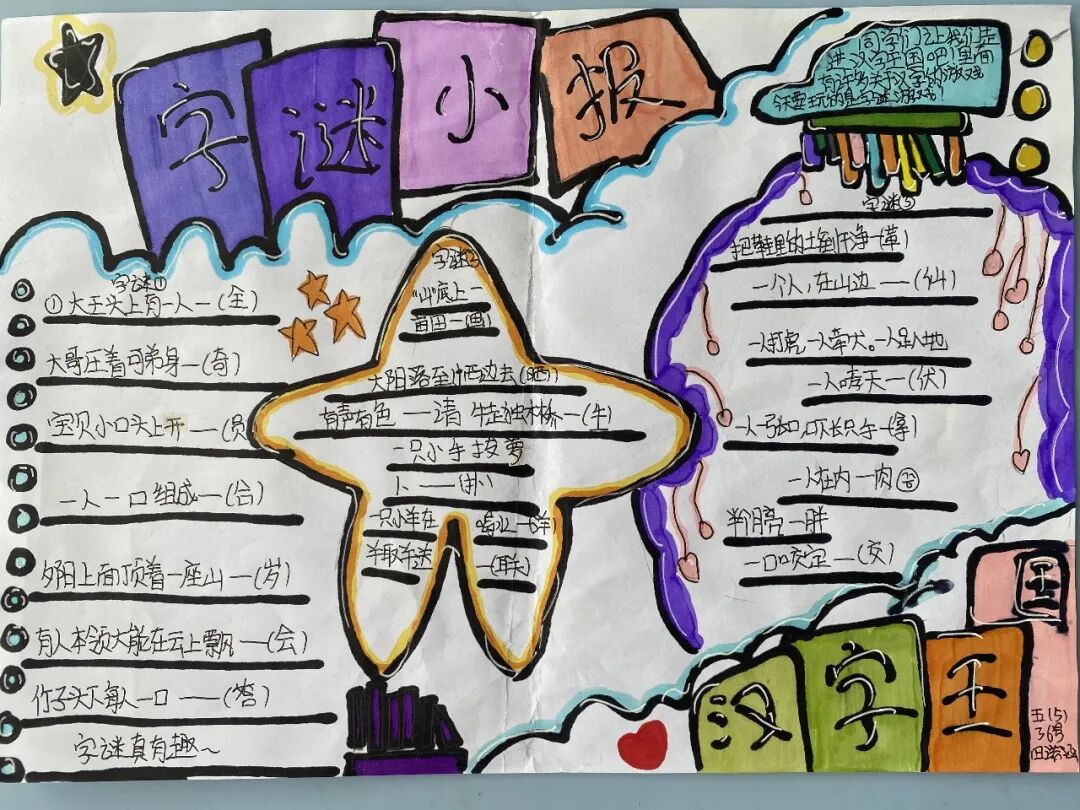 字谜小报
同学们让我们走
进汉字王国吧!里面
有许多关于汉字的游戏
字谜①
①大王头上有一人一(全)
大哥压着可弟身一(奇)
宝贝小口头上开一(员)
一人一口组成一(合)
夕阳上面顶着一座山一(岁)
有人本领大能在云上飘一(会)
竹子头下每人一口一(答)
字谜真有趣~
字谜2
"山"底上一
亩田一(画)
太阳落至山西边去(晒)
有声有色一请 牛走独木桥一(牛)
一只小手拔萝
卜一(扑)
一只小羊在
喝水一(洋)
半取半送
一(联)
字谜3
把鞋里的土倒干净一(革)
一个人,在山边一(仙)
一人打虎一人牵犬。
一人哮天一(伏)
一人在内一肉
半个月亮一胖
一口咬定一(交)
汉字王国
五(5)
36号